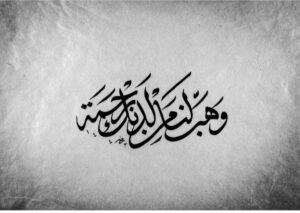 وَهَب لَنا مِن لَدُنكَ رَحمَة